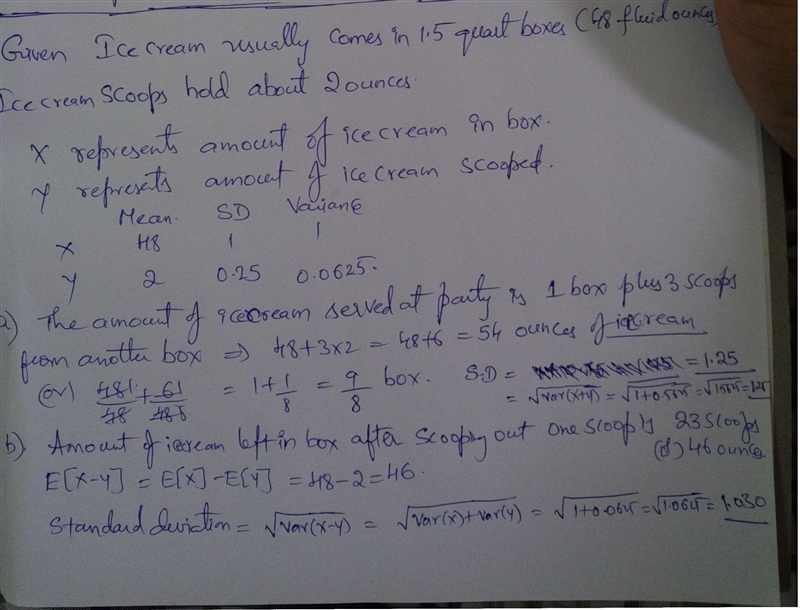 Given Ice cream usually comes in 1.5 quart boxes (48 fluid ounces)
Ice cream scoops hold about 2 ounces.
X represents amount of ice cream in box.
Y represents amount of ice cream scooped.
Mean. SD Variance
X 48 1 1
Y 2 0.25 0.0625.
a) The amount of icecream served at party is 1 box plus 3 scoops
from another box ⇒ 48+3x2 = 48+6 = 54 ounces of icecream
(or) 481/48 + 61/488 = 1+1/8 = 9/8 box. S.D = = 1.25
= √var(x+y) = √1+0.5625 = √1.5625 = 1.25
b). Amount of icecream left in box after scooping out one scoop is 23 scoops
(or) 46 ounces.
E[X-Y] = E[X]-E[Y] = 48-2 = 46.
Standard deviation = √var(x-y) = √var(x)+var(y) = √1+0.0625 = √1.0625 = 1.030